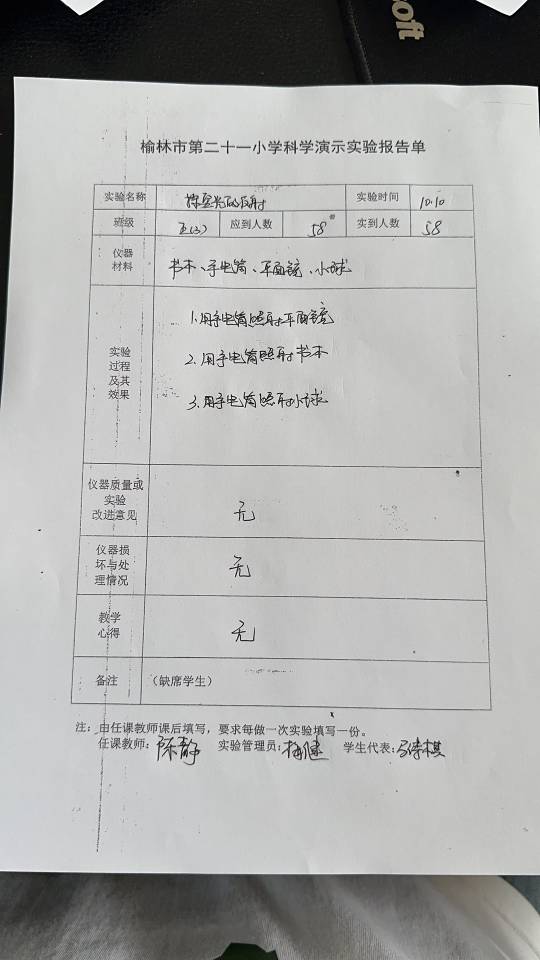 oft
榆林市第二十一小学科学演示实验报告单
实验名称 探究光的反射 实验时间 10.10
班级 五(3) 应到人数 58 实到人数 58
仪器
材料
书本、手电筒、平面镜、小球
实验
过程
及其
效果
1.用手电筒照射平面镜
2.用手电筒照射书本
3.用手电筒照射小球
仪器质量或
实验
改进意见
无
仪器损
坏与处
理情况
无
教学
心得
无
备注 (缺席学生)
注：由任课教师课后填写，要求每做一次实验填写一份。
任课教师：陈静 实验管理员: 学生代表: